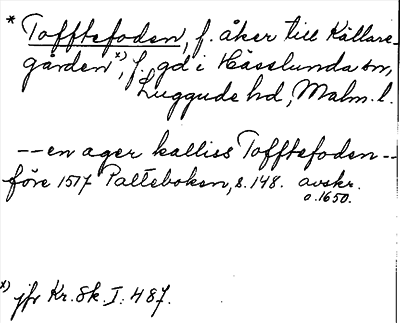 * Tofftefoden, f. åker till Källare-
gården x), f. gd i Hässlunda sn,
Luggude hd, Malm. l.
-- en ager kalliss Tofftefoden --
före 1517 Palteboken, s. 148. avskr.
o. 1650.
x) jfr Kr. Sk. I: 487.